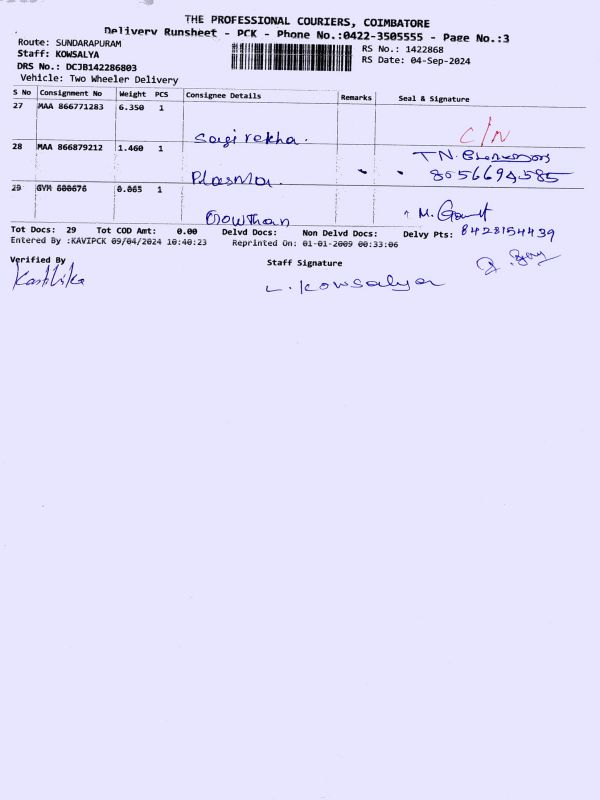 THE PROFESSIONAL COURIERS, COIMBATORE
Delivery Runsheet - PCK - Phone No.:0422-3505555 - Page No.:3
Route: SUNDARAPURAM
RS No.: 1422868
Staff: KOWSALYA
RS Date: 04-Sep-2024
DRS No.: DCJB142286803
Vehicle: Two Wheeler Delivery
S No Consignment No Weight PCS Consignee Details Remarks Seal & Signature
27 MAA 866771283 6.350 1
Sagi rekha. C/N
28 MAA 866879212 1.460 1 T.N.
Plasma. 8056694585
29 GYM 600676 0.065 1
Gowthan M.
Tot Docs: 29 Tot COD Amt: 0.00 Delvd Docs: Non Delvd Docs: Delvy Pts: 8428154439
Entered By :KAVIPCK 09/04/2024 10:40:23 Reprinted On: 01-01-2009 00:33:06
Verified By Staff Signature
Karthika L. Kowsalya